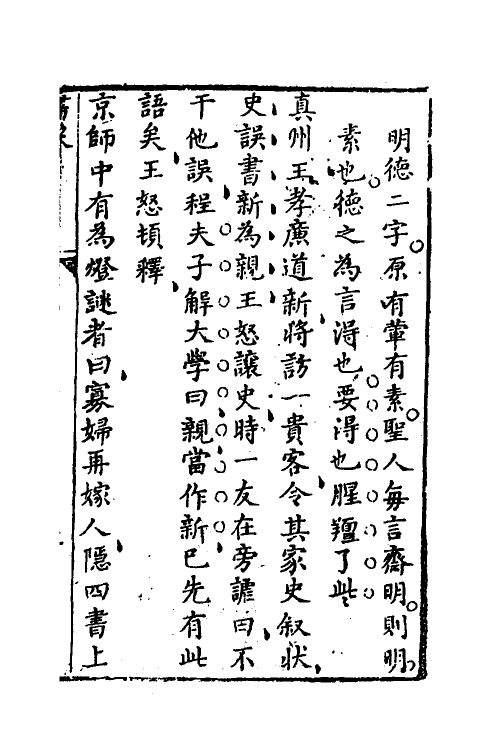 明德二字原有葷有素聖人每言齋明則明
素也德之為言淂也要淂也腥羶了些
真州王孝廣道新將訪一貴客令其家史叙狀
史誤書新為親王怒讓史時一友在旁謔曰不
干他誤程夫子解大學曰親當作新已先有此
語矣王怒頓釋
京師中有為燈謎者曰寡婦再嫁人隱四書上